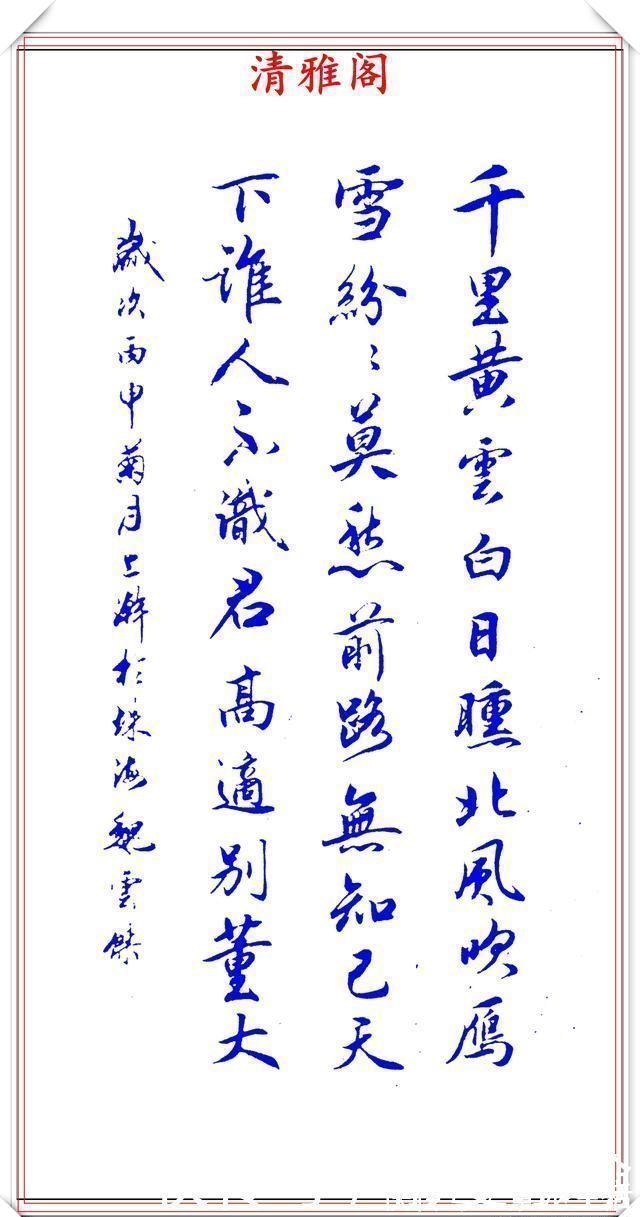 清雅阁
千里黄雲白日曛北風吹雁
雪紛〻莫愁前路無知己天
下誰人不識君高適别董大
歲次丙申菊月上澣於珠海魏雲